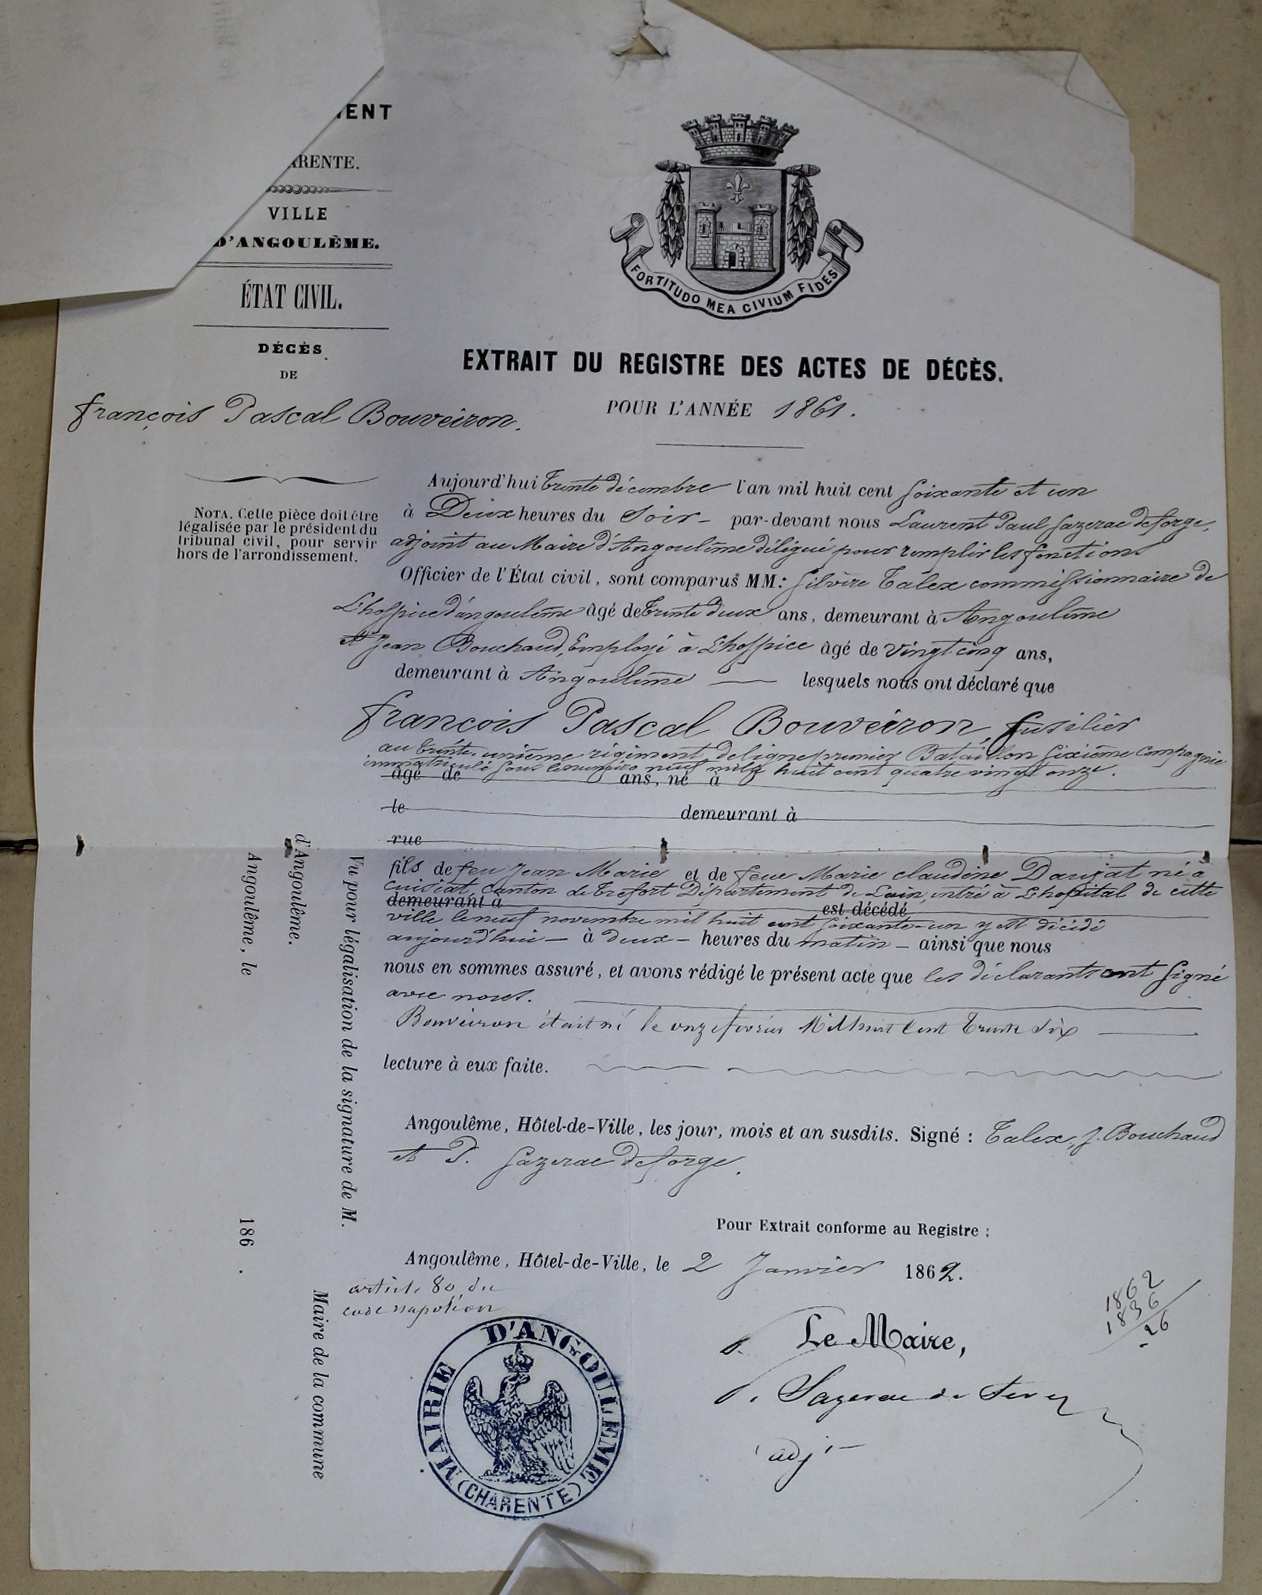 MENT
ARENTE.
VILLE
D'ANGOULÊME.
ÉTAT CIVIL.
DÉCÈS
DE
françois Pascal Bouveiron.
NOTA. Cette pièce doit être
légalisée par le président du
tribunal civil, pour servir
hors de l'arrondissement.
FORTITUDO MEA CIVIUM FIDES
EXTRAIT DU REGISTRE DES ACTES DE DÉCÈS.
POUR L'ANNÉE 1861.
Aujourd'hui trente décembre l'an mil huit cent soixante et un
à Deux heures du Soir - par-devant nous Laurent Paul Sazerac deforge,
adjoint au Maire d'Angoulême délégué pour remplir les fonctions
Officier de l'État civil, sont comparus MM: Silvère Talex commissionnaire de
L'hospice d'angoulême âgé de trente deux ans, demeurant à Angoulême
et Jean Bouchaud, Employé à L'hospice âgé de vingt cinq ans,
demeurant à Angoulême lesquels nous ont déclaré que
francois Pascal Bouveiron, fusilier
au trente-unième régiment de ligne premier Bataillon sixième compagnie
immatriculé sous le numéro neuf mille huit cent quatre vingt onze.
âgé de ans, né à
le demeurant à
rue
fils de feu Jean Marie et de feue Marie claudène Daujat né à
cuisiat, canton de Trefort Département de Lain, entré à L'hospital de cette
demeurant à est décédé
ville le neuf novembre mil huit cent soixante-un y est décédé
aujourd'hui - à deux - heures du matin - ainsi que nous
nous en sommes assuré, et avons rédigé le présent acte que les déclarants ont signé
avec nous.
Bouveiron était né le onze fevrier Mil huit Cent Trente Six
lecture à eux faite.
Angoulême, Hôtel-de-Ville, les jour, mois et an susdits. Signé : Talex, J. Bouchaud
et P. Sazerac deforge.
Pour Extrait conforme au Registre :
Angoulême, Hôtel-de-Ville, le 2 Janvier 1862.
article 80 du
code napoléon
Le Maire,
P. Sazerac de Forge
adj
1862
1836
26
MAIRIE D'ANGOULEME
(CHARENTE)
Vu pour légalisation de la signature de M.
Maire de la commune
d'Angoulême.
Angoulême, le 186 .